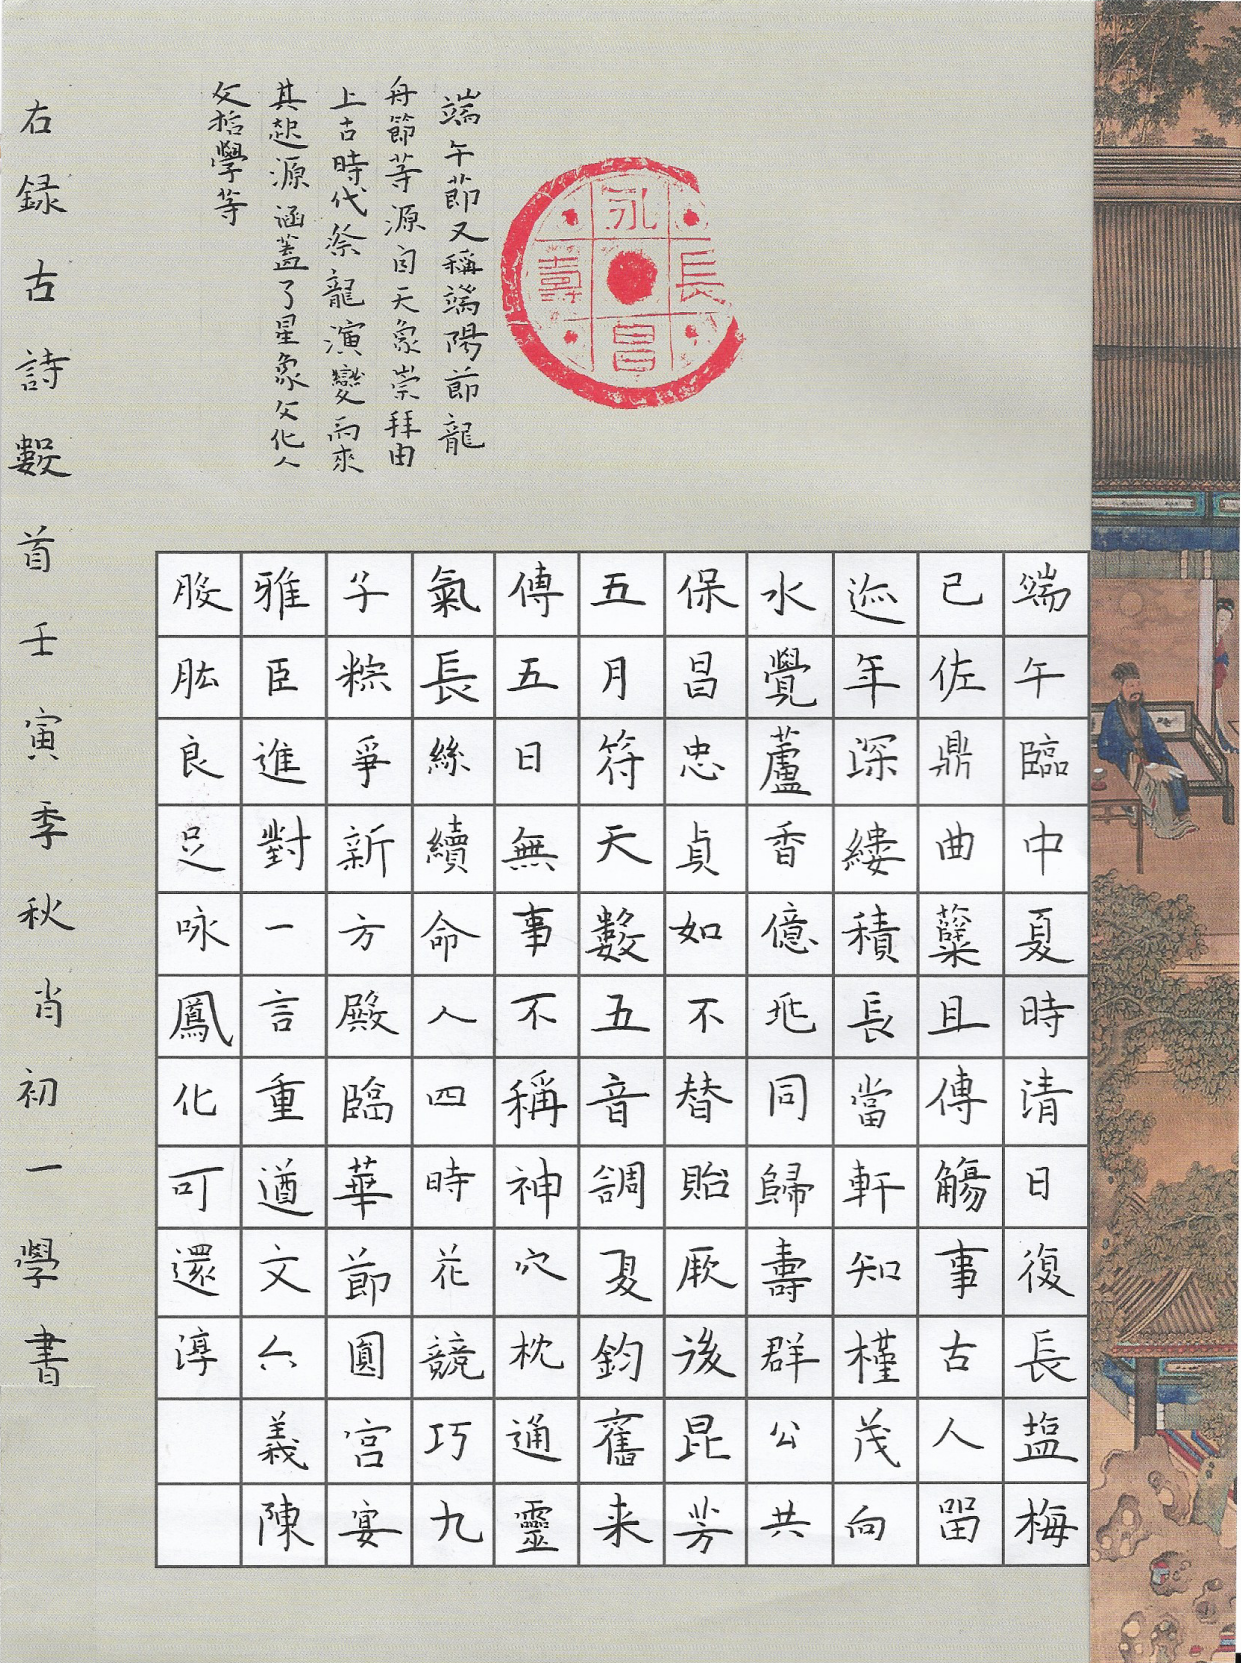 永昌長壽
端午節又稱端陽節龍
舟節等源自天象崇拜由
上古時代祭龍演變而來
其起源涵蓋了星象文化人
文哲學等
端午臨中夏時清日復長塩梅
已佐鼎曲蘖且傳觴事古人留
迹年深縷積長當軒知槿茂向
水覺蘆香億兆同歸壽群公共
保昌忠貞如不替貽厥後昆芳
五月符天數五音調夏鈞舊来
傳五日無事不稱神穴枕通靈
氣長絲續命人四時花競巧九
子粽爭新方殿臨華節圓宮宴
雅臣進對一言重遒文六義陳
股肱良足咏鳳化可還淳
右録古詩數首壬寅季秋肖初一學書